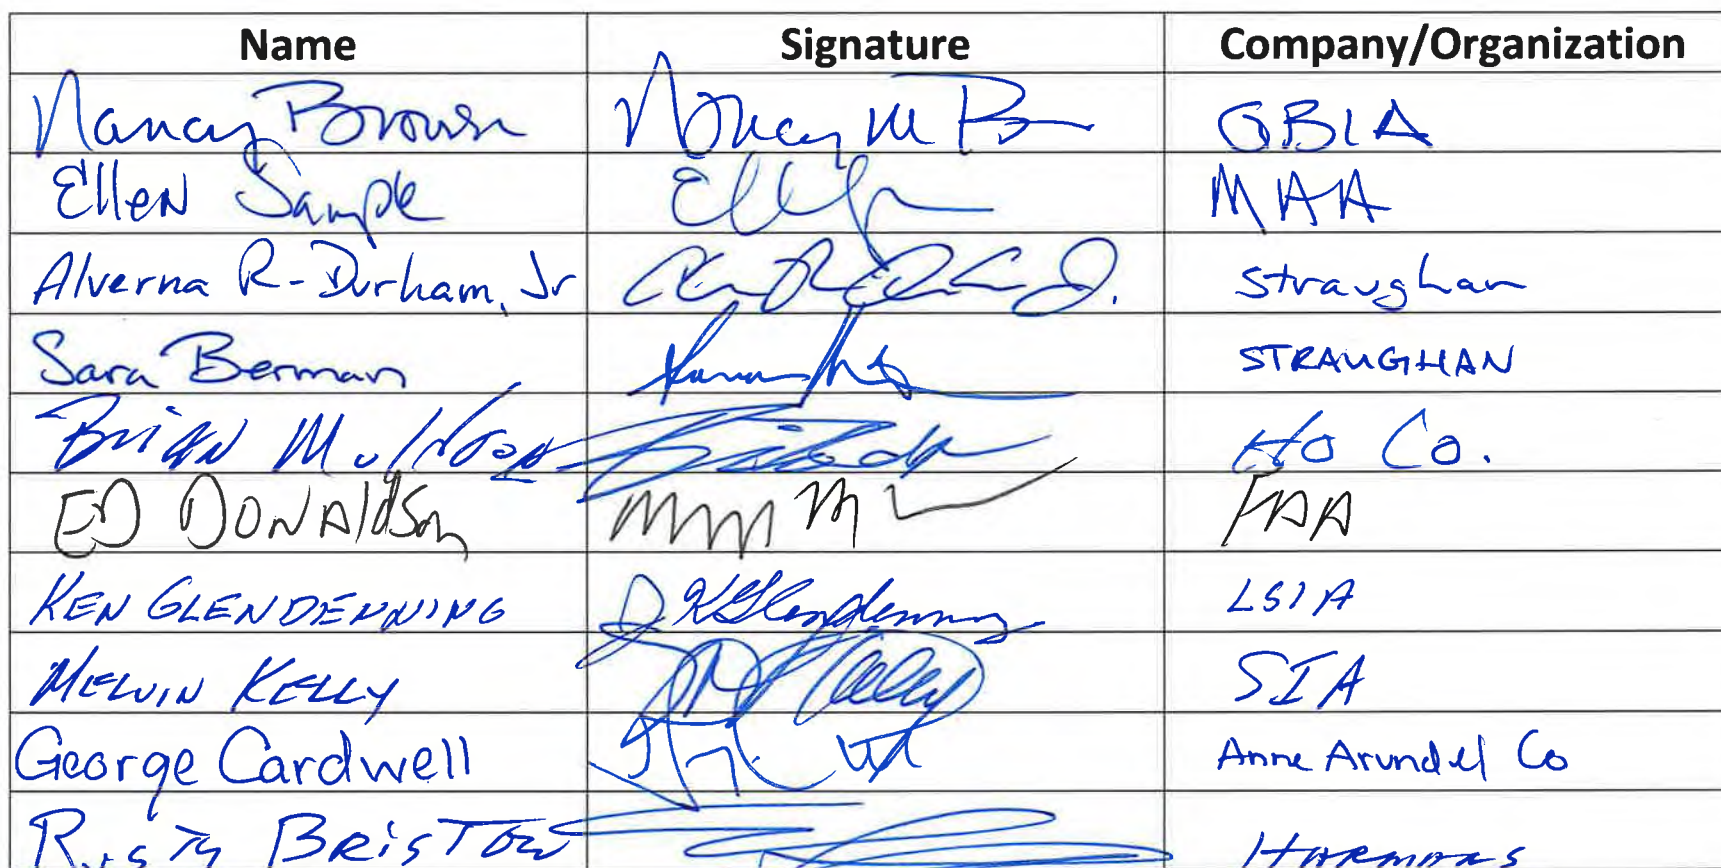 Name Signature Company/Organization
Nancy Brown Nancy M B GBIA
Ellen Sample MAA
Alverna R-Durham, Jr Straughan
Sara Berman STRAUGHAN
BRIAN Ho Co.
ED DONALDSON FAA
KEN GLENDENNING J K Glendenning LSIA
MELVIN KELLY Kelly SIA
George Cardwell Anne Arundel Co
Rusty BRISTOW HARMANS